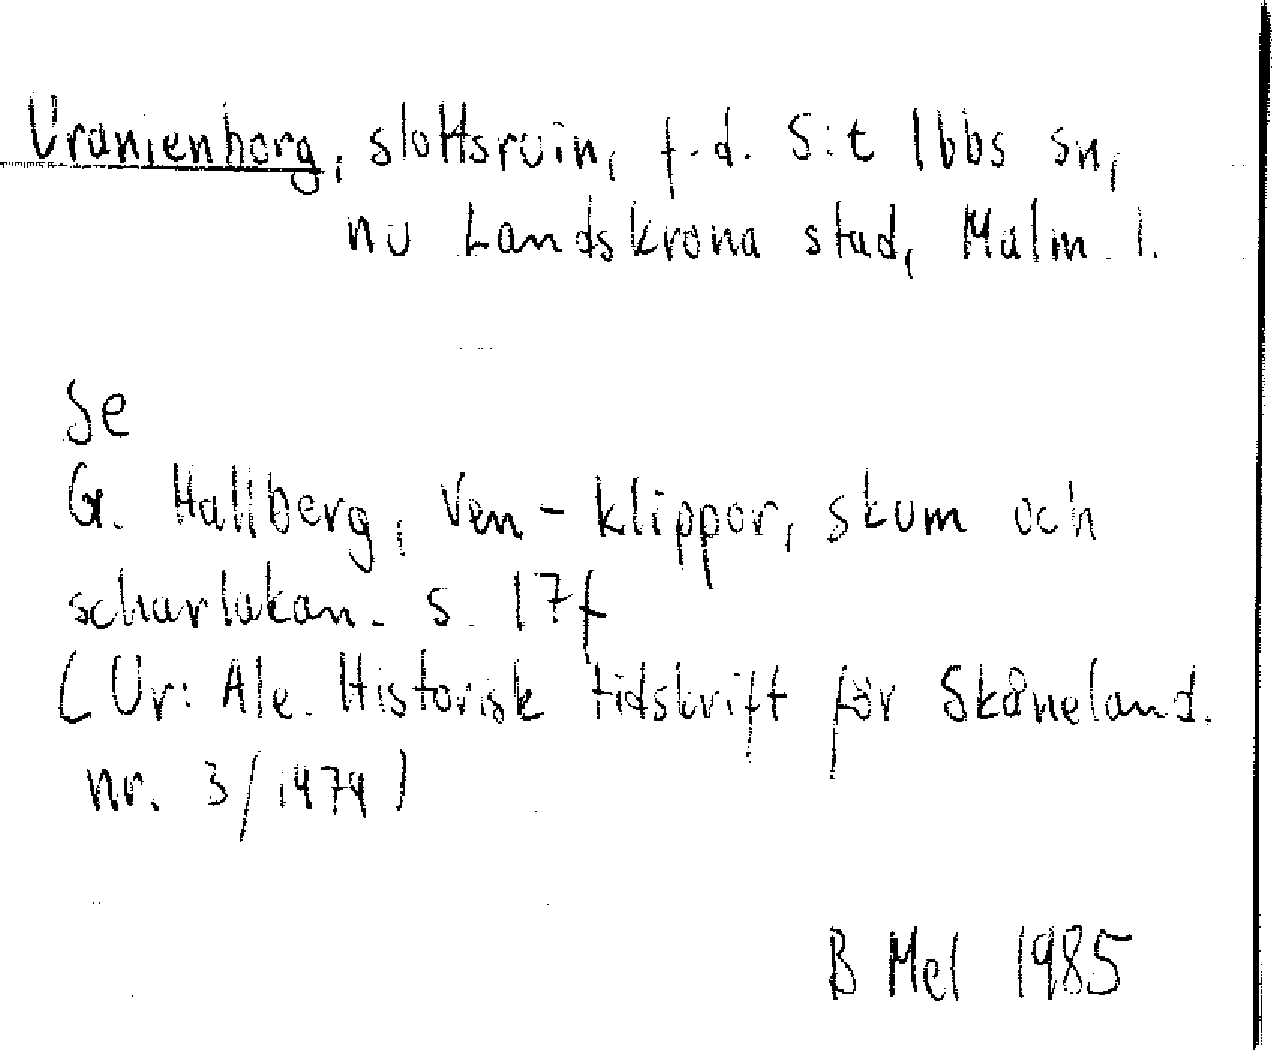 Uranienborg, slottsruin, f.d. S:t Ibbs sn,
nu Landskrona stad, Malm. l.
Se
G. Hallberg, Ven - klippor, skum och
scharlakan. s. 17f
(Ur: Ale. Historisk tidskrift för Skåneland.
nr. 3/1979)
B Mel 1985